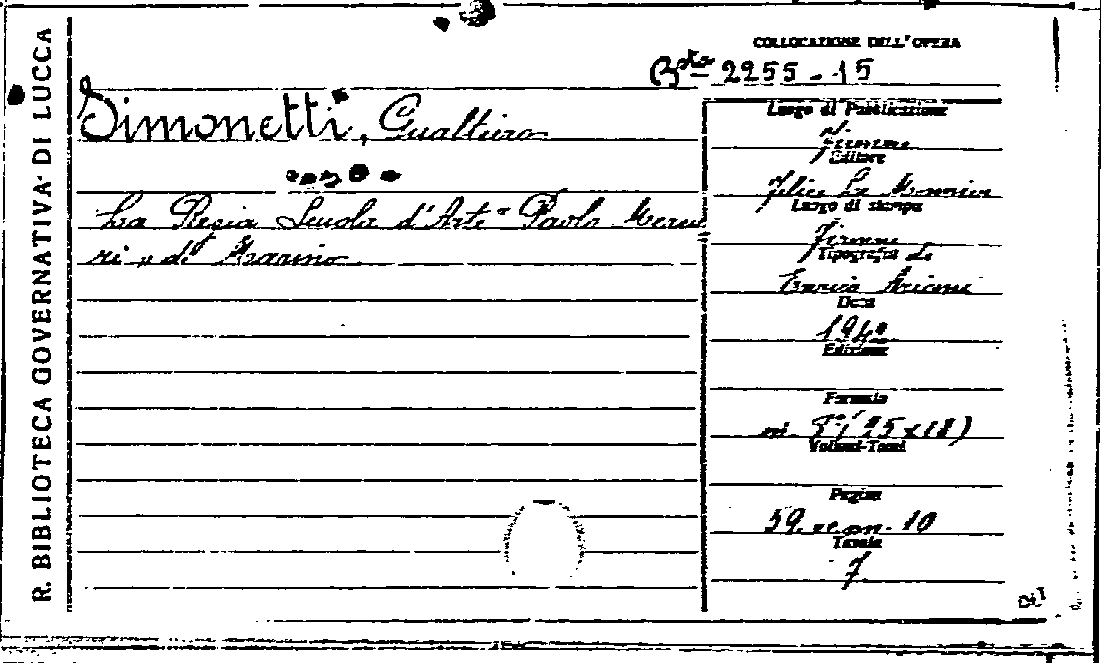 R. BIBLIOTECA GOVERNATIVA DI LUCCA
COLLOCAZIONE DELL'OPERA
Bta 2255-15
Simonetti, Gualtiero
La Regia Scuola d'Arte "Paolo Mercu
ri" di Marino
Luogo di Pubblicazione
Firenze
Editore
Felice Le Monnier
Luogo di stampa
Firenze
Tipografia di
Enrico Ariani
Data
1940
Edizione
Formato
in 8° (25x18)
Volumi-Tomi
Pagine
59. 10
Tavole
7